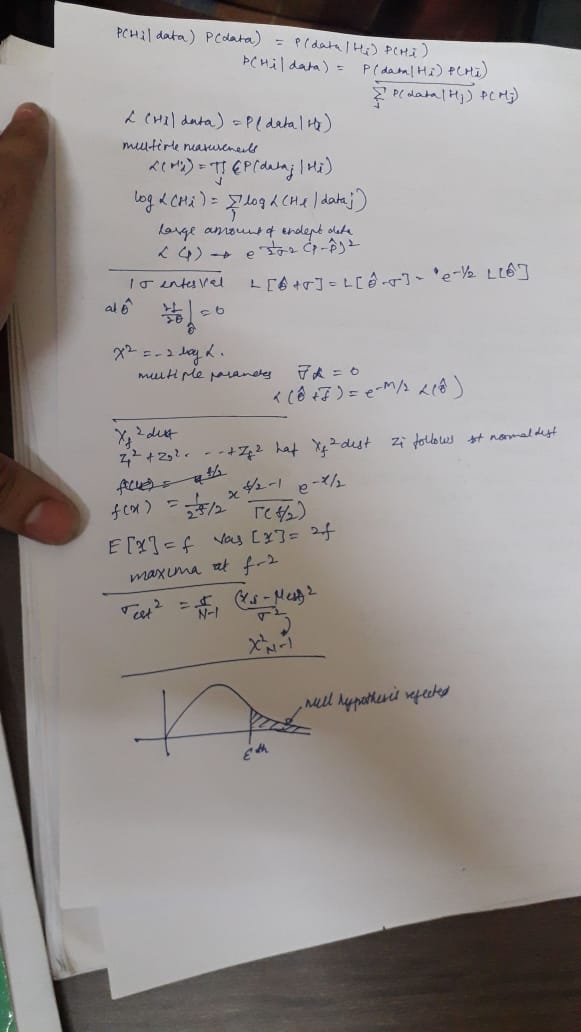 P(Hi|data) P(data) = P(data|Hi) P(Hi)
P(Hi|data) = P(data|Hi) P(Hi)
Σj P(data|Hj) P(Hj)
L (Hi|data) = P(data|Hi)
multiple measurements
L(Hi) = Πj P(dataj|Hi)
log L(Hi) = Σj log L(Hi|dataj)
large amount of indept data
L (p) → e (p-p̂)²
1σ interval L[θ̂+σ] = L[θ̂-σ] = e^-1/2 L[θ̂]
at θ̂ |θ̂ = 0
χ² = -2 log L.
multiple = 0
= e^-M/2 L(θ̂)
χf² dist
Z1² + Z2² + Zf² has χf² dist Zi follows st normal dist
f(x) = 1/2^f/2 x^f/2-1 e^-x/2 / Γ(f/2)
E[x] = f Var[x] = 2f
maxima at f-2
σest² = N-1
σ²
χ²N-1
null hypothesis rejected
th